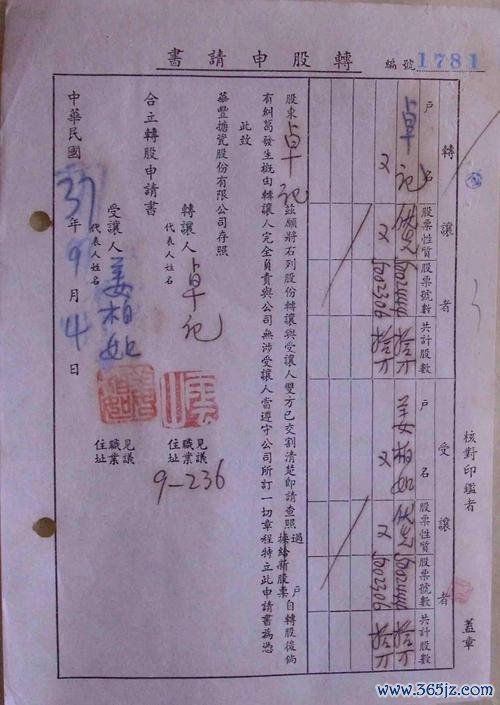 轉股申請書
編號 1781
核對印鑑者 蓋章
轉讓者 受讓者
戶名 股票性質 股票號數 共計股數 戶名 股票性質 股票號數 共計股數
卓記 姜柏如
又 又 6002306 又 又 6002306
股東卓記茲願將右列股份轉讓與受讓人雙方已交割清楚即請查照過戶換給新股票自轉股後倘
有糾葛發生概由轉讓人完全負責與公司無涉受讓人當遵守公司所訂一切章程特立此申請書為憑
此致
華豐搪瓷股份有限公司存照
合立轉股申請書
轉讓人 卓記 見議
代表人姓名 職業
住址
9-236
受讓人 姜柏如 見議
代表人姓名 職業
住址
中華民國37年9月4日
www.365jz.com